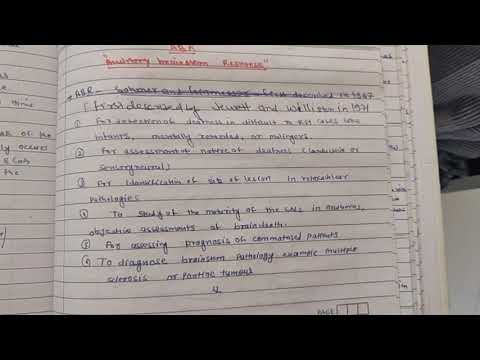 ABR
"Auditory brainstem Response"
* ABR - Sohmer and described in 1967
[first described by Jewett and Williston in 1971
① For detection of deafness in difficult to test cases like
infants, mentally retarded, or malingers.
② For assessment of nature of deafness (conductive or
sensorineural)
③ For identification of site of lesion in retrocochlear
Pathologies
④ To study of the maturity of the CNS in newborns,
objective assessments of braindeath.
⑤ For assessing prognosis of commatosed patients
⑥ To diagnose brainstem Pathology example multiple
sclerosis or Pontine tumous
PAGE